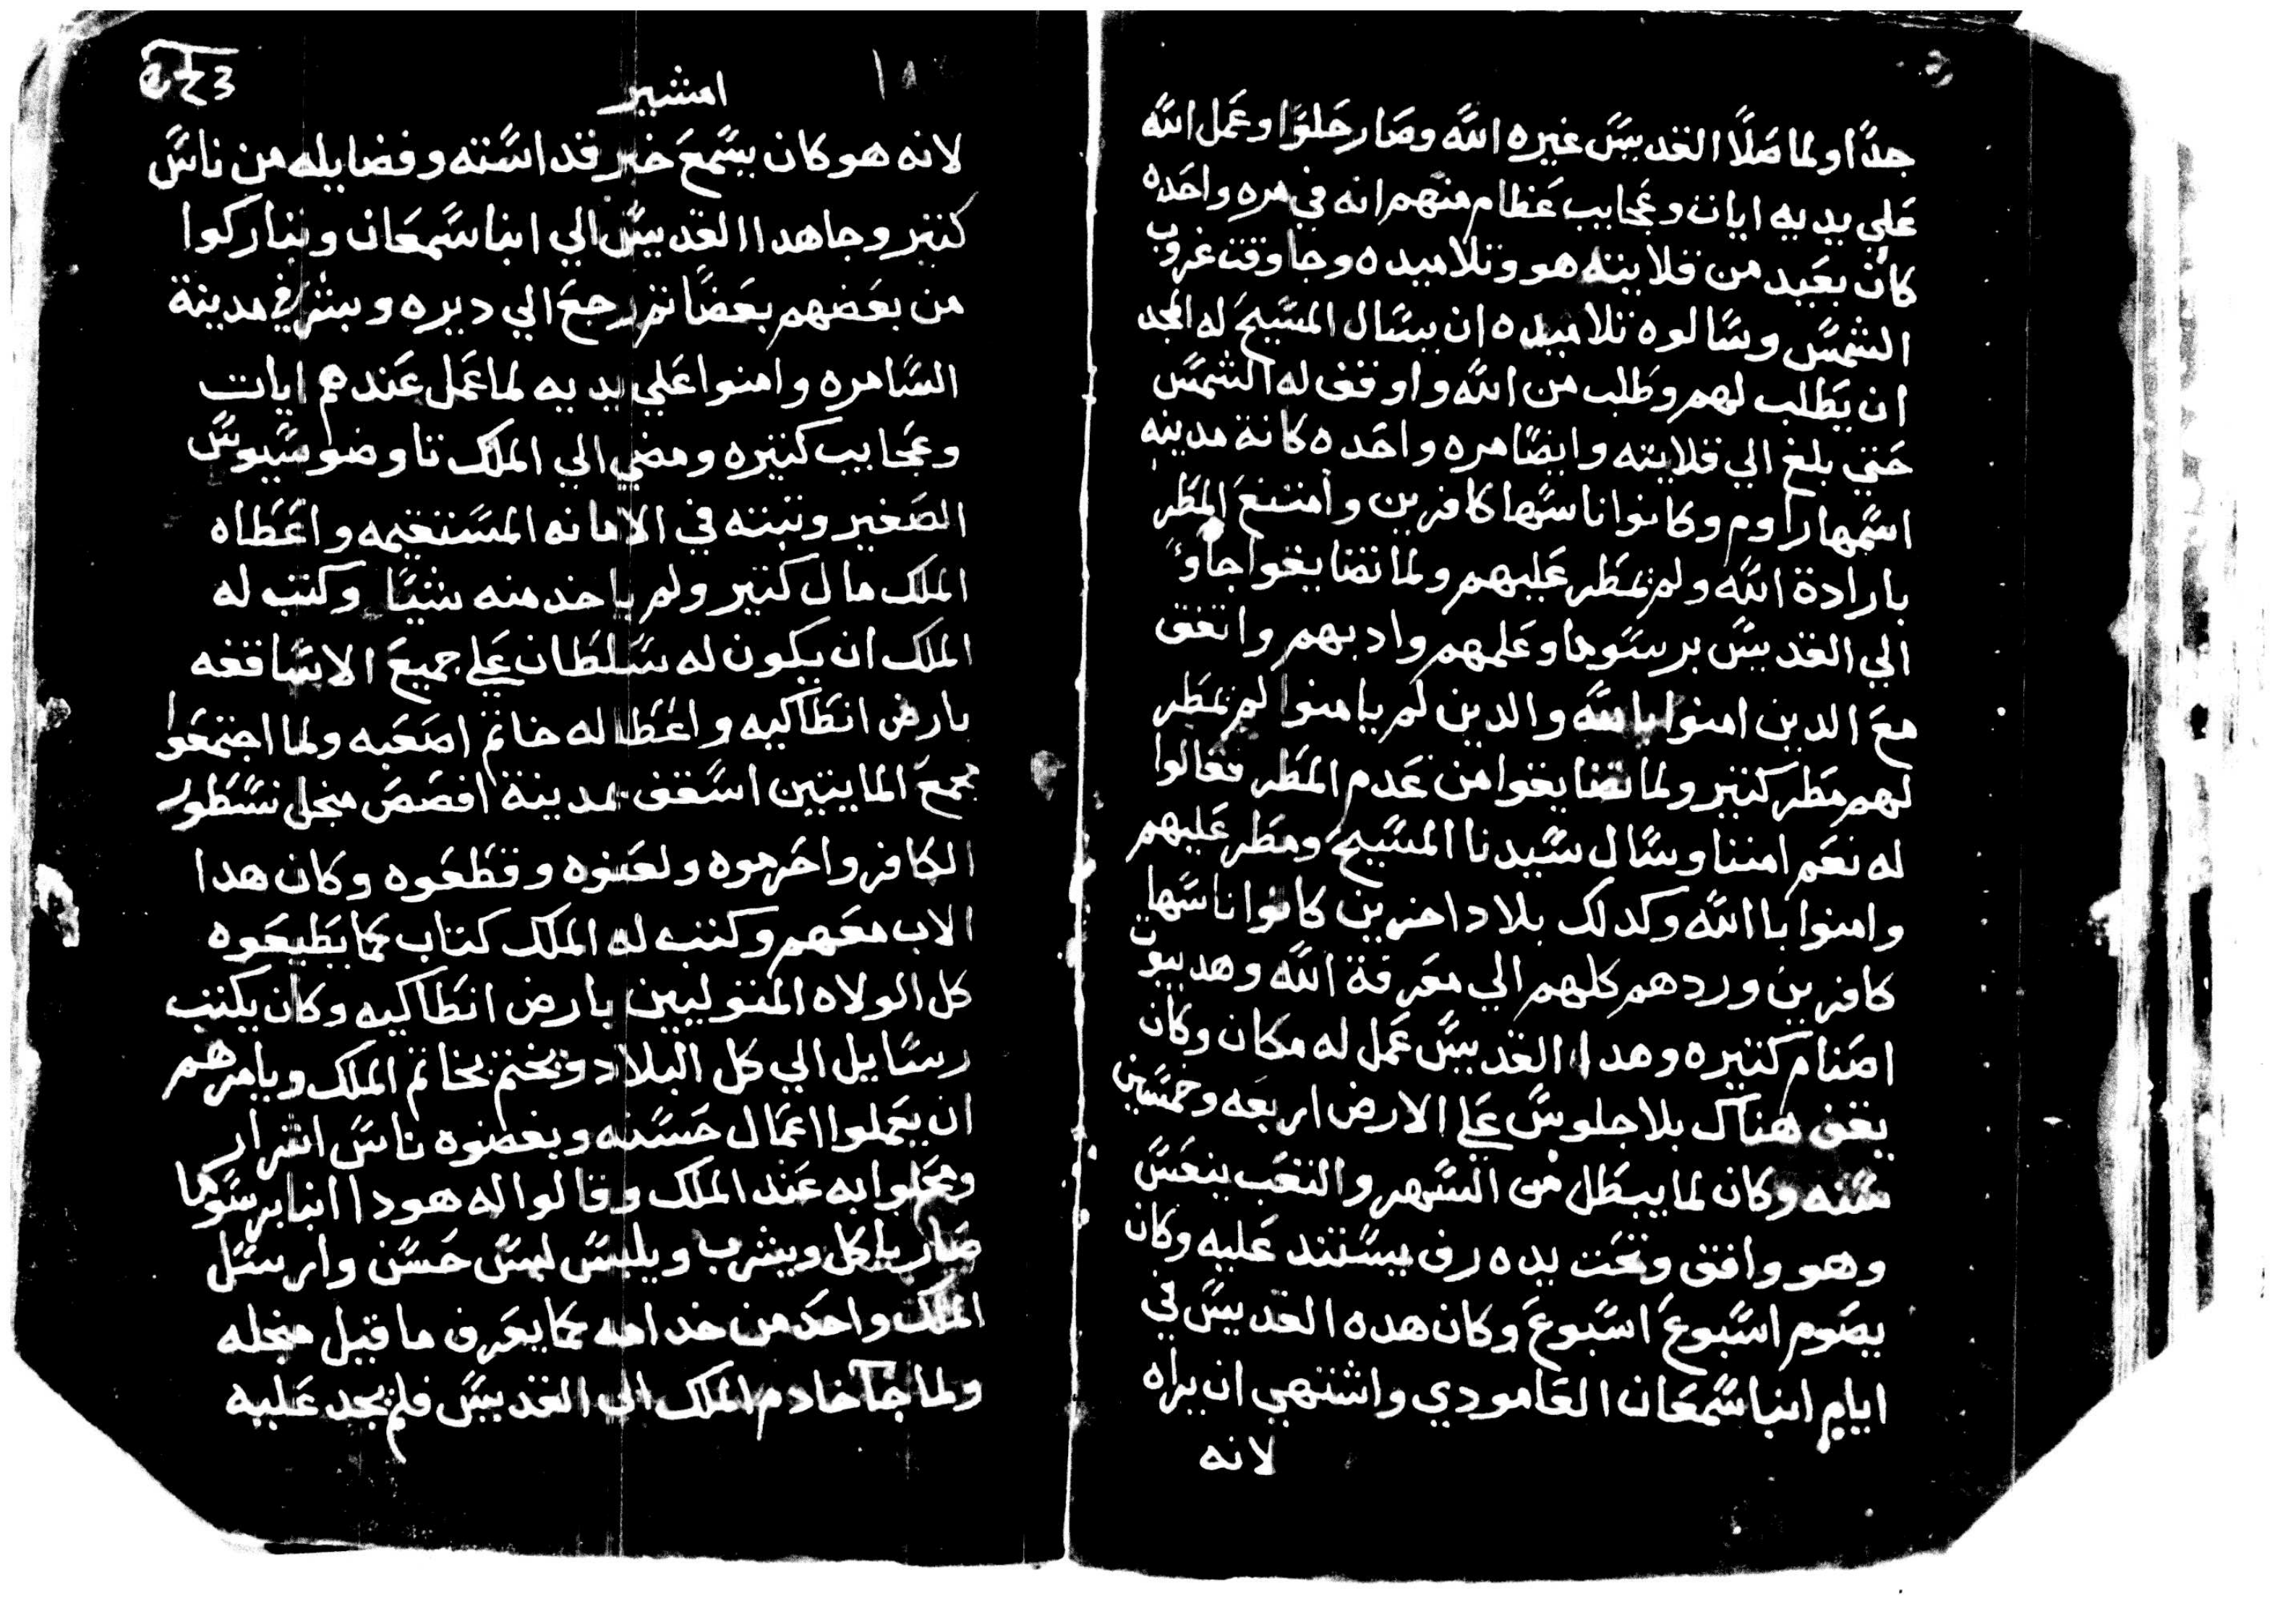 جدًا ولما صلا القديس غيره الله وصار حلوا وعمل الله
علي يديه ايات وعجايب عظام منهم انه في مره واحده
كان بعيد من قلايته هو وتلاميده وجا وقت غروب
الشمس وسالوه تلاميده ان يسال المسيح له المجد
ان يطلب لهم وطلب من الله واوقف له الشمس
حتي بلغ الي قلايته وايضا مره واحده كانة مدينه
اسمها راوم وكانوا ناسها كافرين وامتنع المطر
بارادة الله ولم تمطر عليهم ولما تضايقوا جاو
الي القديس برسوما وعلمهم وادبهم واتفق
مع الدين امنوا بالله والدين لم يامنوا لم تمطر
لهم مطر كتير ولما تضايقوا من عدم المطر فقالوا
له نعم امننا وسال سيدنا المسيح ومطر عليهم
وامنوا باالله وكدلك بلاد اخرين كانوا ناسها
كافرين وردهم كلهم الي معرفة الله وهد بيوت
اصنام كتيره وهدا القديس عمل له مكان وكان
يقف هناك بلا جلوس علي الارض اربعه وخمسين
سنه وكان لما يبطل من السهر والتعب ينعس
وهو واقف وتحت يده رف يستند عليه وكان
يصوم اسبوع اسبوع وكان هده القديس في
ايام انبا سمعان العامودي واشتهي ان يراه
لانه
امشير
لانه هو كان يسمع خبر قداسته وفضايله من ناس
كتير وجا هدا القديس الي انبا سمعان وتباركوا
من بعضهم بعضا تم رجع الي ديره وبشر في مدينة
السامره وامنوا علي يديه لما عمل عندهم ايات
وعجايب كتيره ومضي الي الملك تاوضوسيوس
الصغير وتبته في الامانه المستقيمه واعطاه
الملك مال كتير ولم ياخد منه شيا وكتب له
الملك ان يكون له سلطان علي جميع الاساقفه
بارض انطاكيه واعطا له خاتم اصعبه ولما اجتمعوا
مجمع المايتين اسقف بمدينة افصص منجل نسطور
الكافر واحرموه ولعنوه وقطعوه وكان هدا
الاب معهم وكتب له الملك كتاب كما يطيعوه
كل الولاه المتوليين بارض انطاكيه وكان يكتب
رسايل الي كل البلاد ويختم بخاتم الملك ويامرهم
ان يعملوا اعمال حسنه وبغضوه ناس اشرار
ومحلوا به عند الملك وقالوا له هودا انبا برسوما
صار ياكل ويشرب ويلبس لبس حسن وارسل
الملك واحد من خدامه كما يعرف ما قيل منجله
ولما جا خادم الملك الي القديس فلم يجد عليه